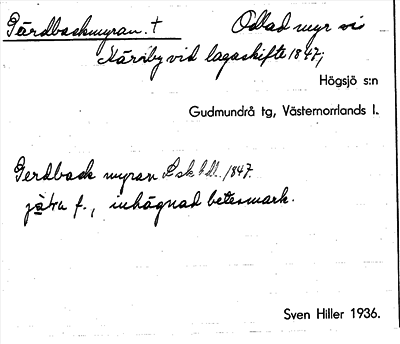 Gärdbackmyran. † Odlad myr vid
Kärrby vid lagaskifte 1847;
Högsjö s:n
Gudmundrå tg, Västernorrlands l.
Gerdback myran Lsk bd. 1847.
jäṣta f., inhägnad betesmark.
Sven Hiller 1936.